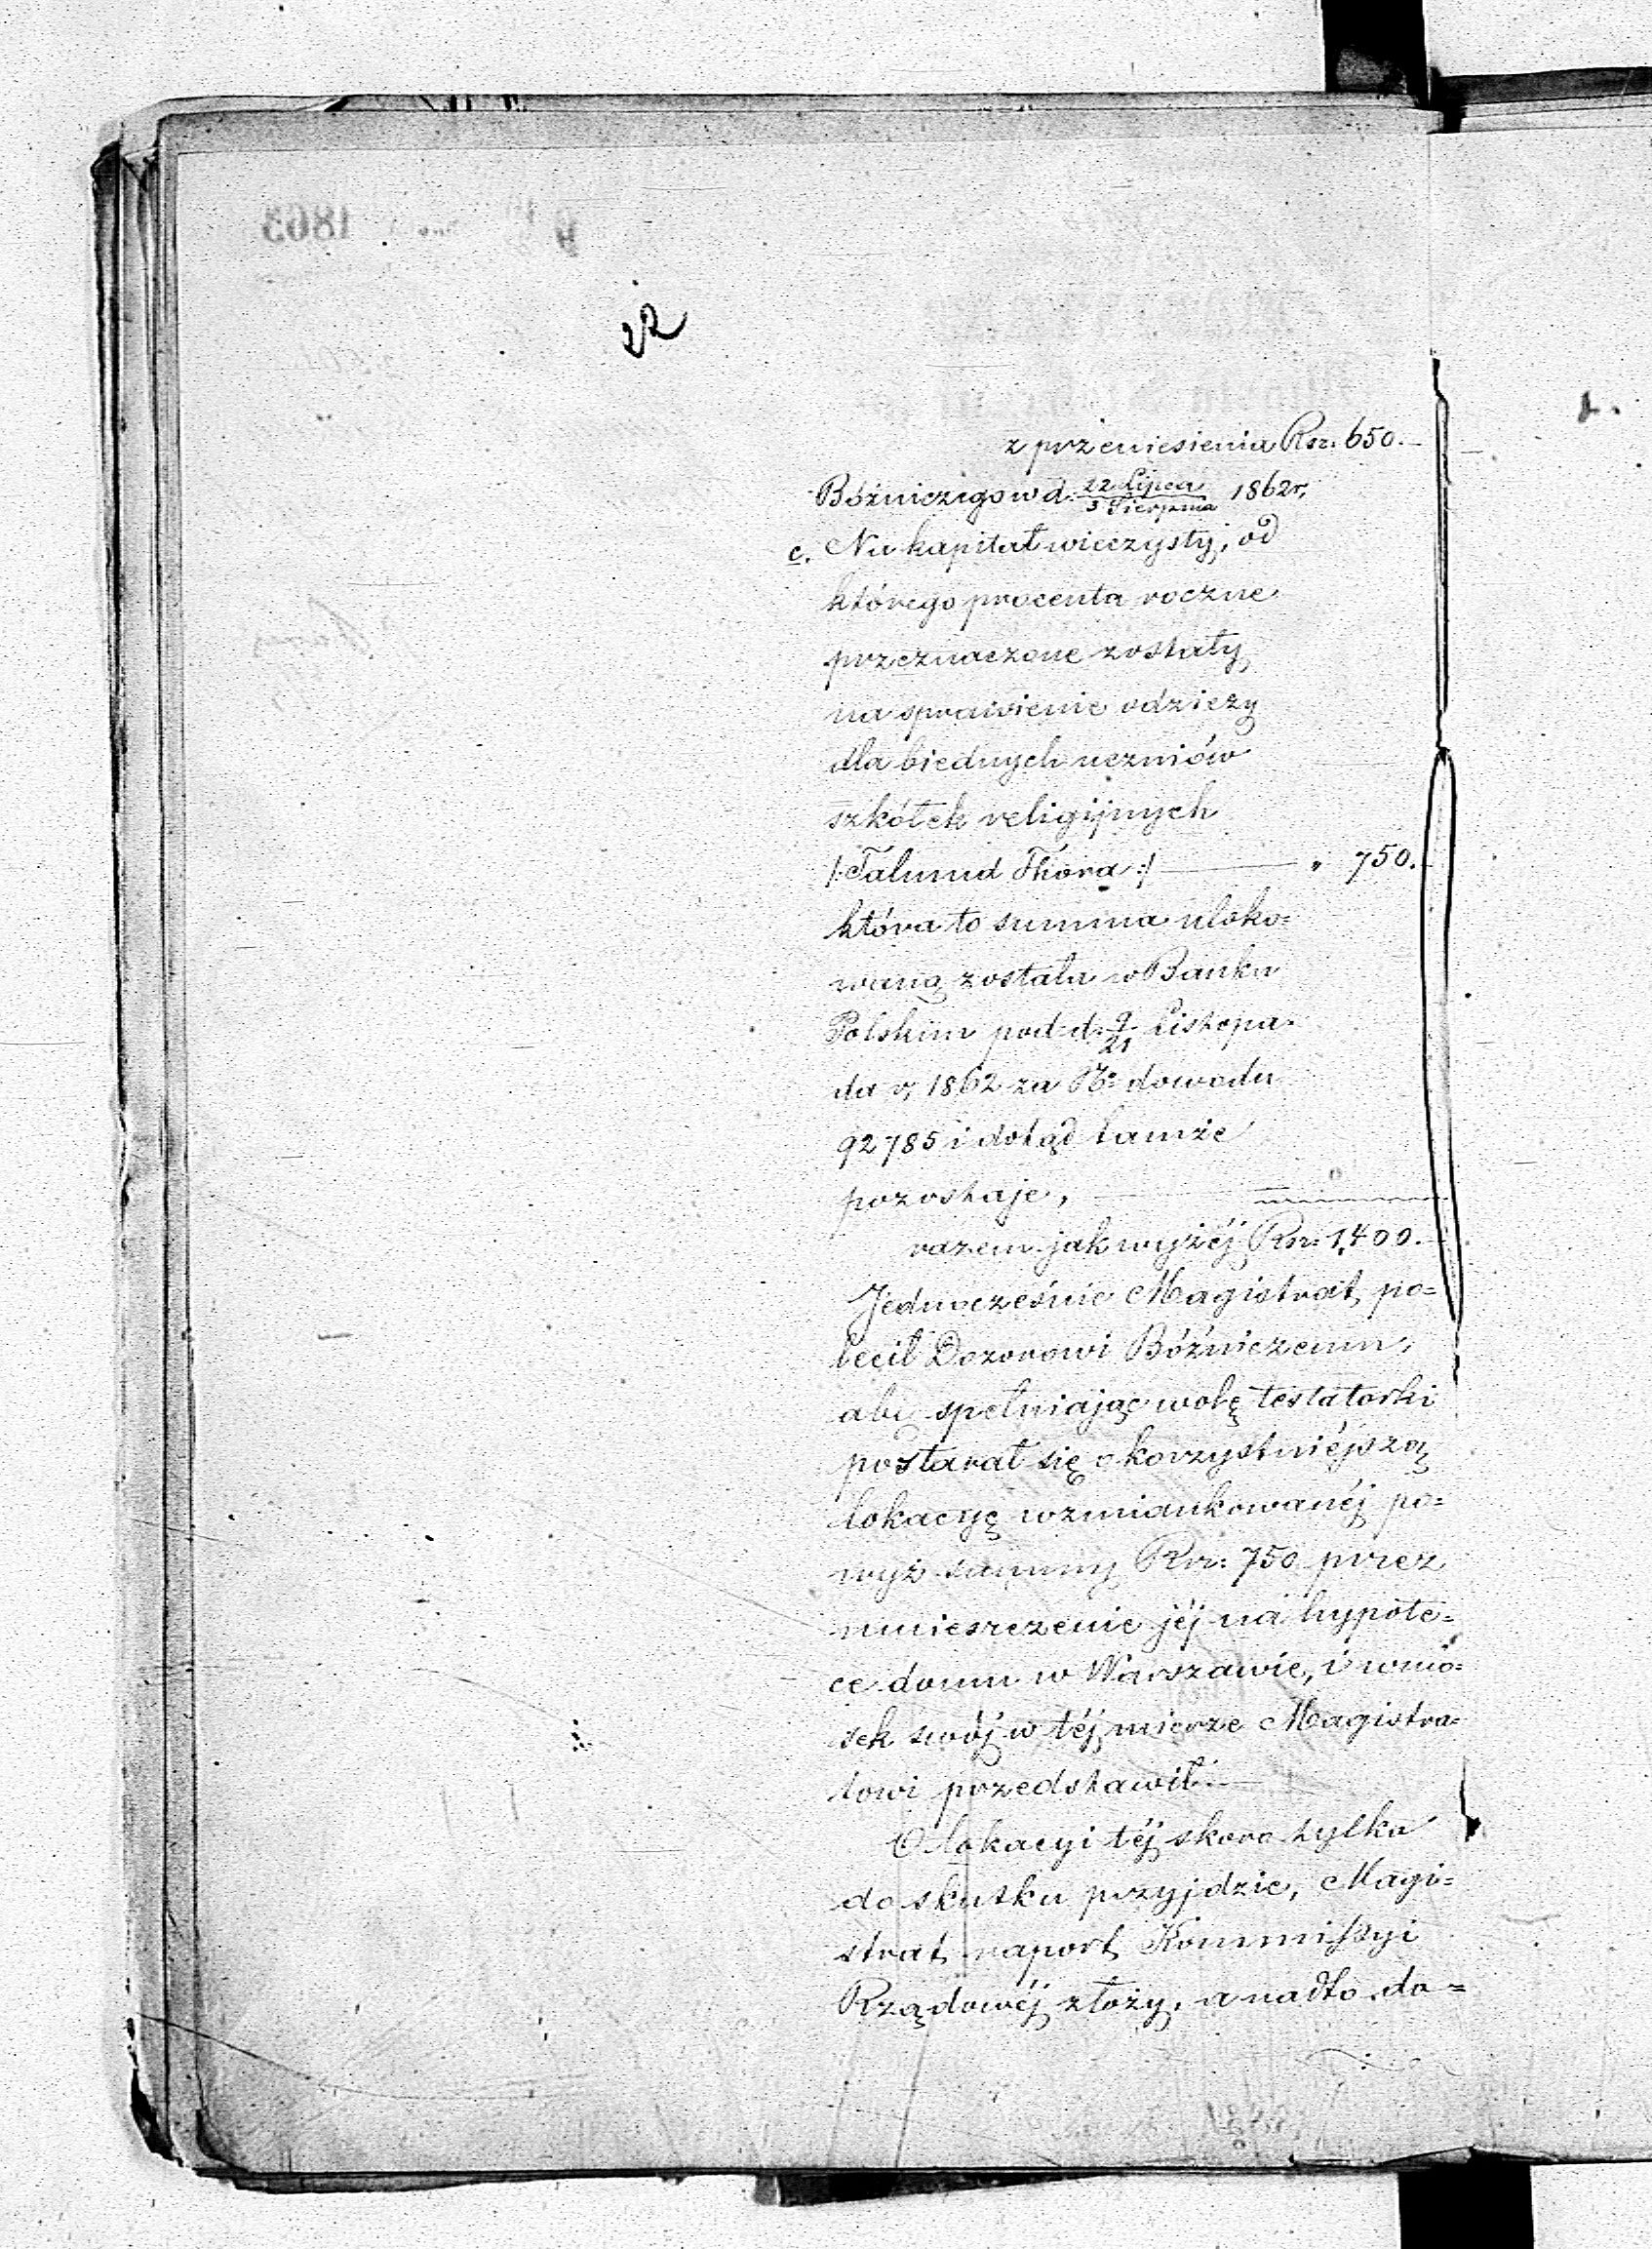 22
z przeniesienia Rsr. 650.
Bóźniczego w d. 22 Lipca / 3 Sierpnia 1862 r,
c. Na kapitał wieczysty, od
którego procenta roczne
przeznaczone zostały
na sprawienie odzieży
dla biednych uczniów
szkółek religijnych
/: Talmud Thora :/ — " 750.
która to summa uloko=
waną została w Banku
Polskim pod d. 9/21 Listopa=
da r, 1862 za No dowodu
92785 i dotąd tamże
pozostaje,
razem jak wyżéj Rsr: 1,400.
Jednocześnie Magistrat po=
lecił Dozorowi Bóźniczemu,
aby spełniając wolę testatorki
postarał się o korzystniéjszą
lokacyę wzmiankowanéj po=
wyż summy Rsr: 750 przez
umieszczenie jéj na hypote=
ce domu w Warszawie, i wnio=
sek swój w téj mierze Magistra=
towi przedstawił.—
O lokacyi téj skoro tylko
do skutku przyjdzie, Magi=
strat raport Kommissyi
Rządowéj złoży, a nadto do=